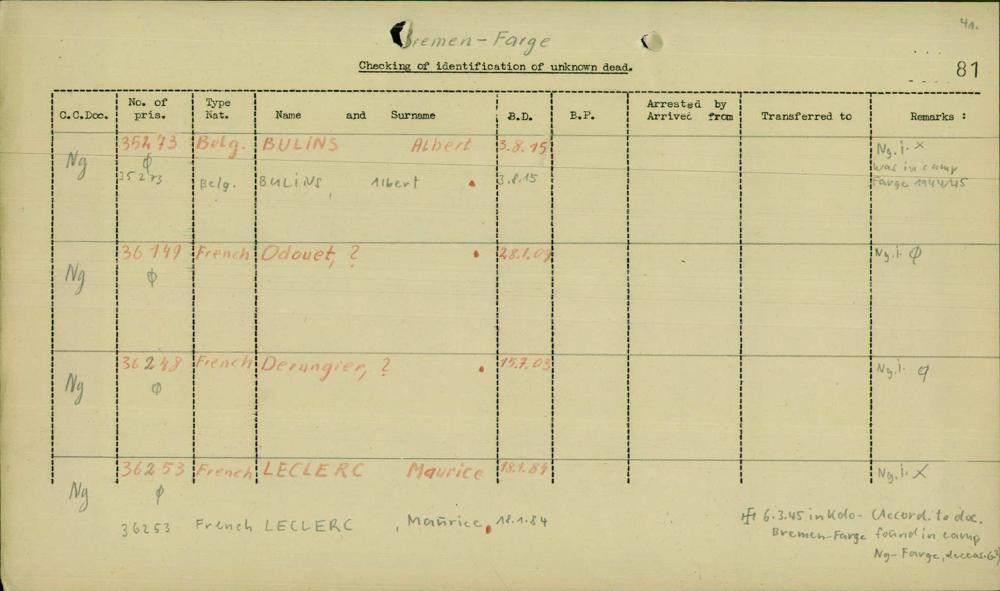 41.
Bremen-Farge
Checking of identification of unknown dead.
81
C.C.Doc. No. of pris. Type Nat. Name and Surname B.D. B.P. Arrested by Arrived from Transferred to Remarks :
Ng 35273 Belg. BULINS Albert 3.8.15 Ng.i. x
φ was in camp
35273 Belg. BULINS, Albert 3.8.15 Farge 1944/45
Ng 36149 French Odouet, ? 28.1.09 Ng.i. φ
φ
Ng 36248 French Derungier, ? 15.7.03 Ng.i.
φ
Ng 36253 French LECLERC Maurice 18.1.84 Ng.i. x
φ
36253 French LECLERC, Maurice, 18.1.84 6.3.45 in Kdo- (Accord. to doc.
Bremen-Farge found in camp
Ng-Farge, deceas.